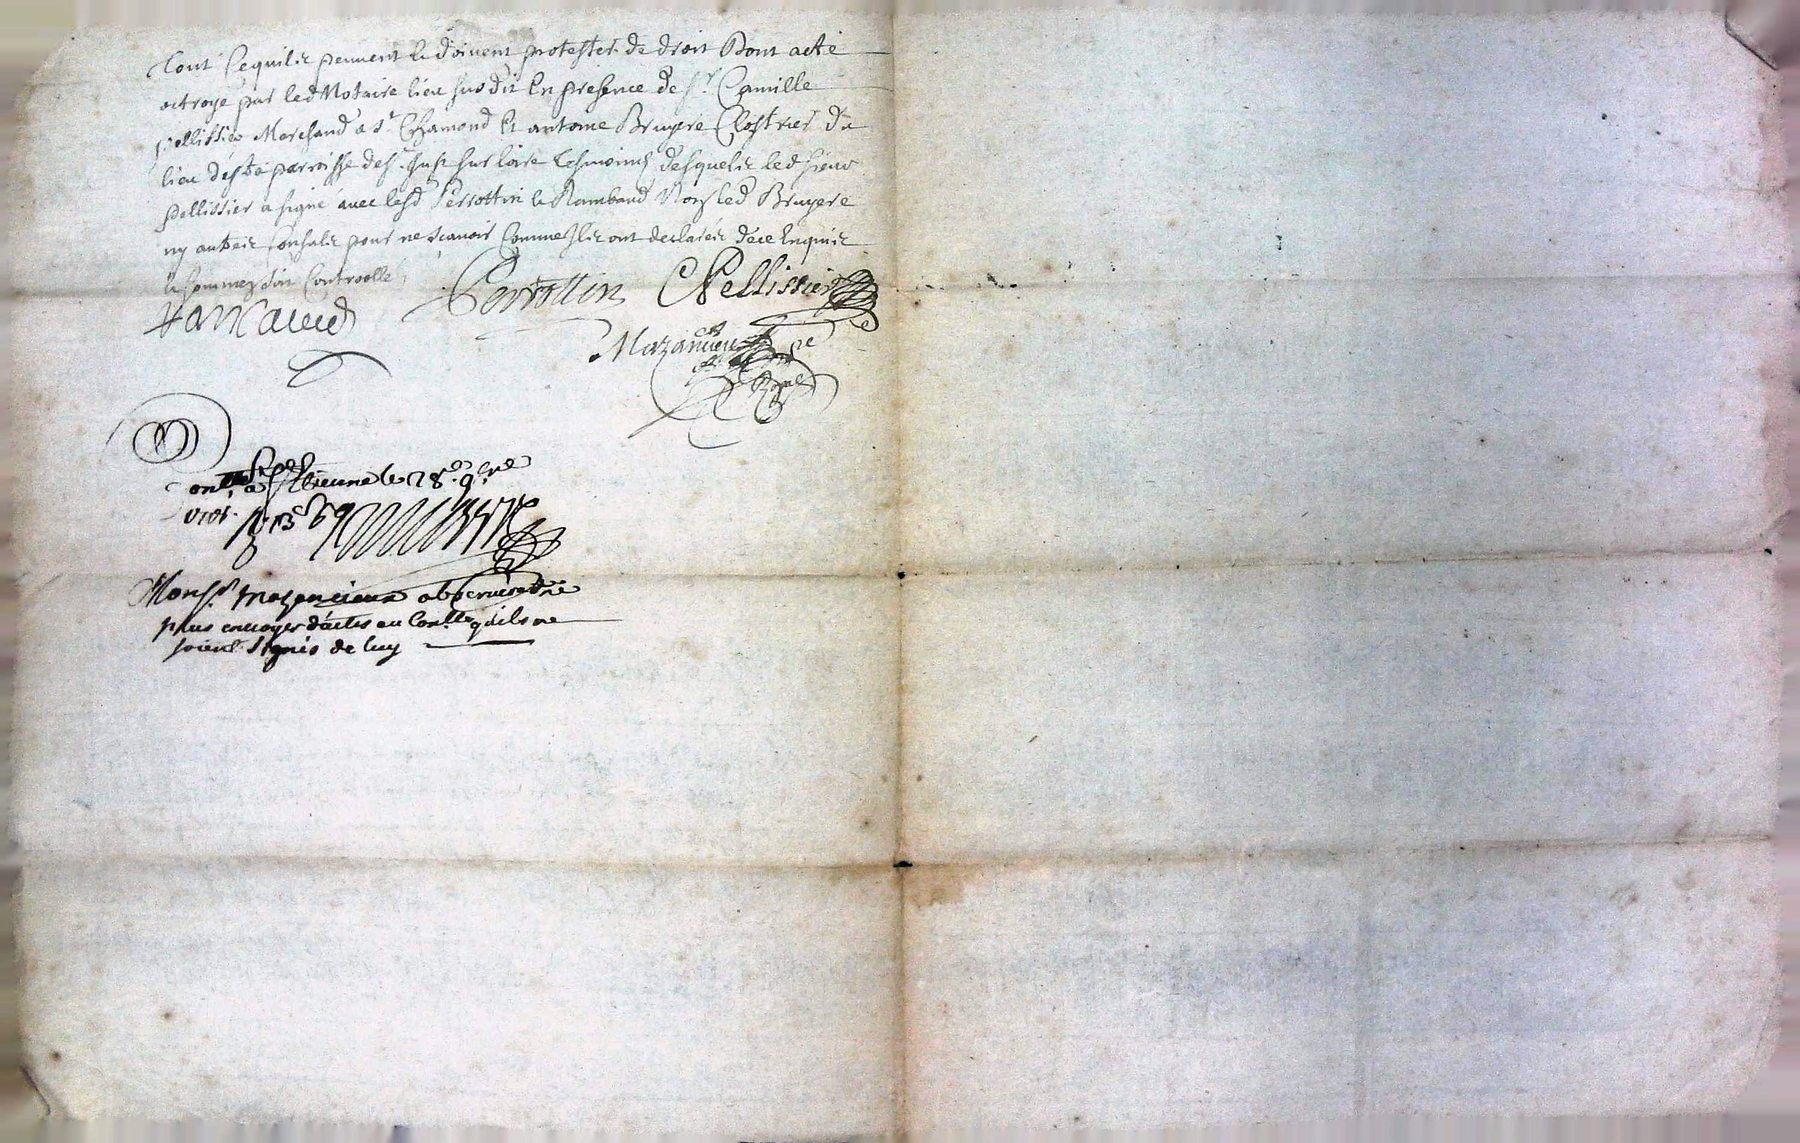 tout cequilz peuvent & doivent protester de droit Dont acte
octroyé par led Notaire lieu susdit En presence de Sr. Camille
pellissier Marchand a St. Chamond Et antoine Bruyere Clostrier du
lieu desd parroisse de St. Just sur loire tesmoins desquelz led sieur
pellissier a signé avec lesd Perrottin & Rambaud Non led Bruyere
ny autres Consulz pour ne scavoir Comme Ilz ont desclarés de ce Enquis
& sommez soit Controollé
Perrottin CPellissier
Mazancieu
Contllé a St Estienne le 28e 9bre
Monsr. mazencieux observera de ne
plus envoyer d'actes au Contlle quils ne
soient signés de luy